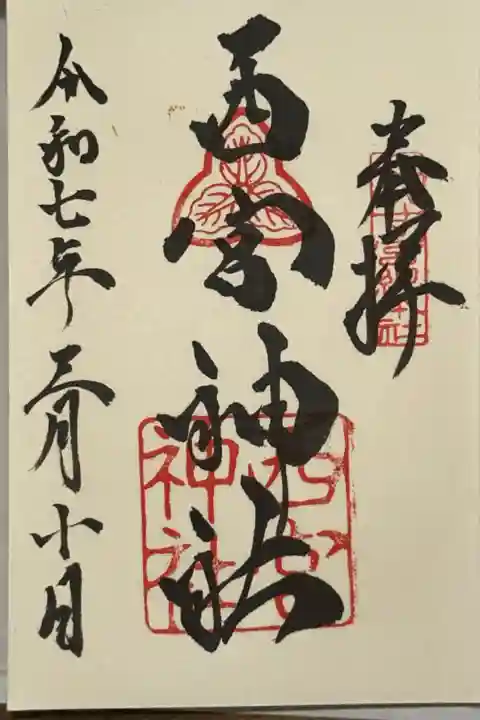 奉拝
西宮神社
令和七年三月十日
西宮神社